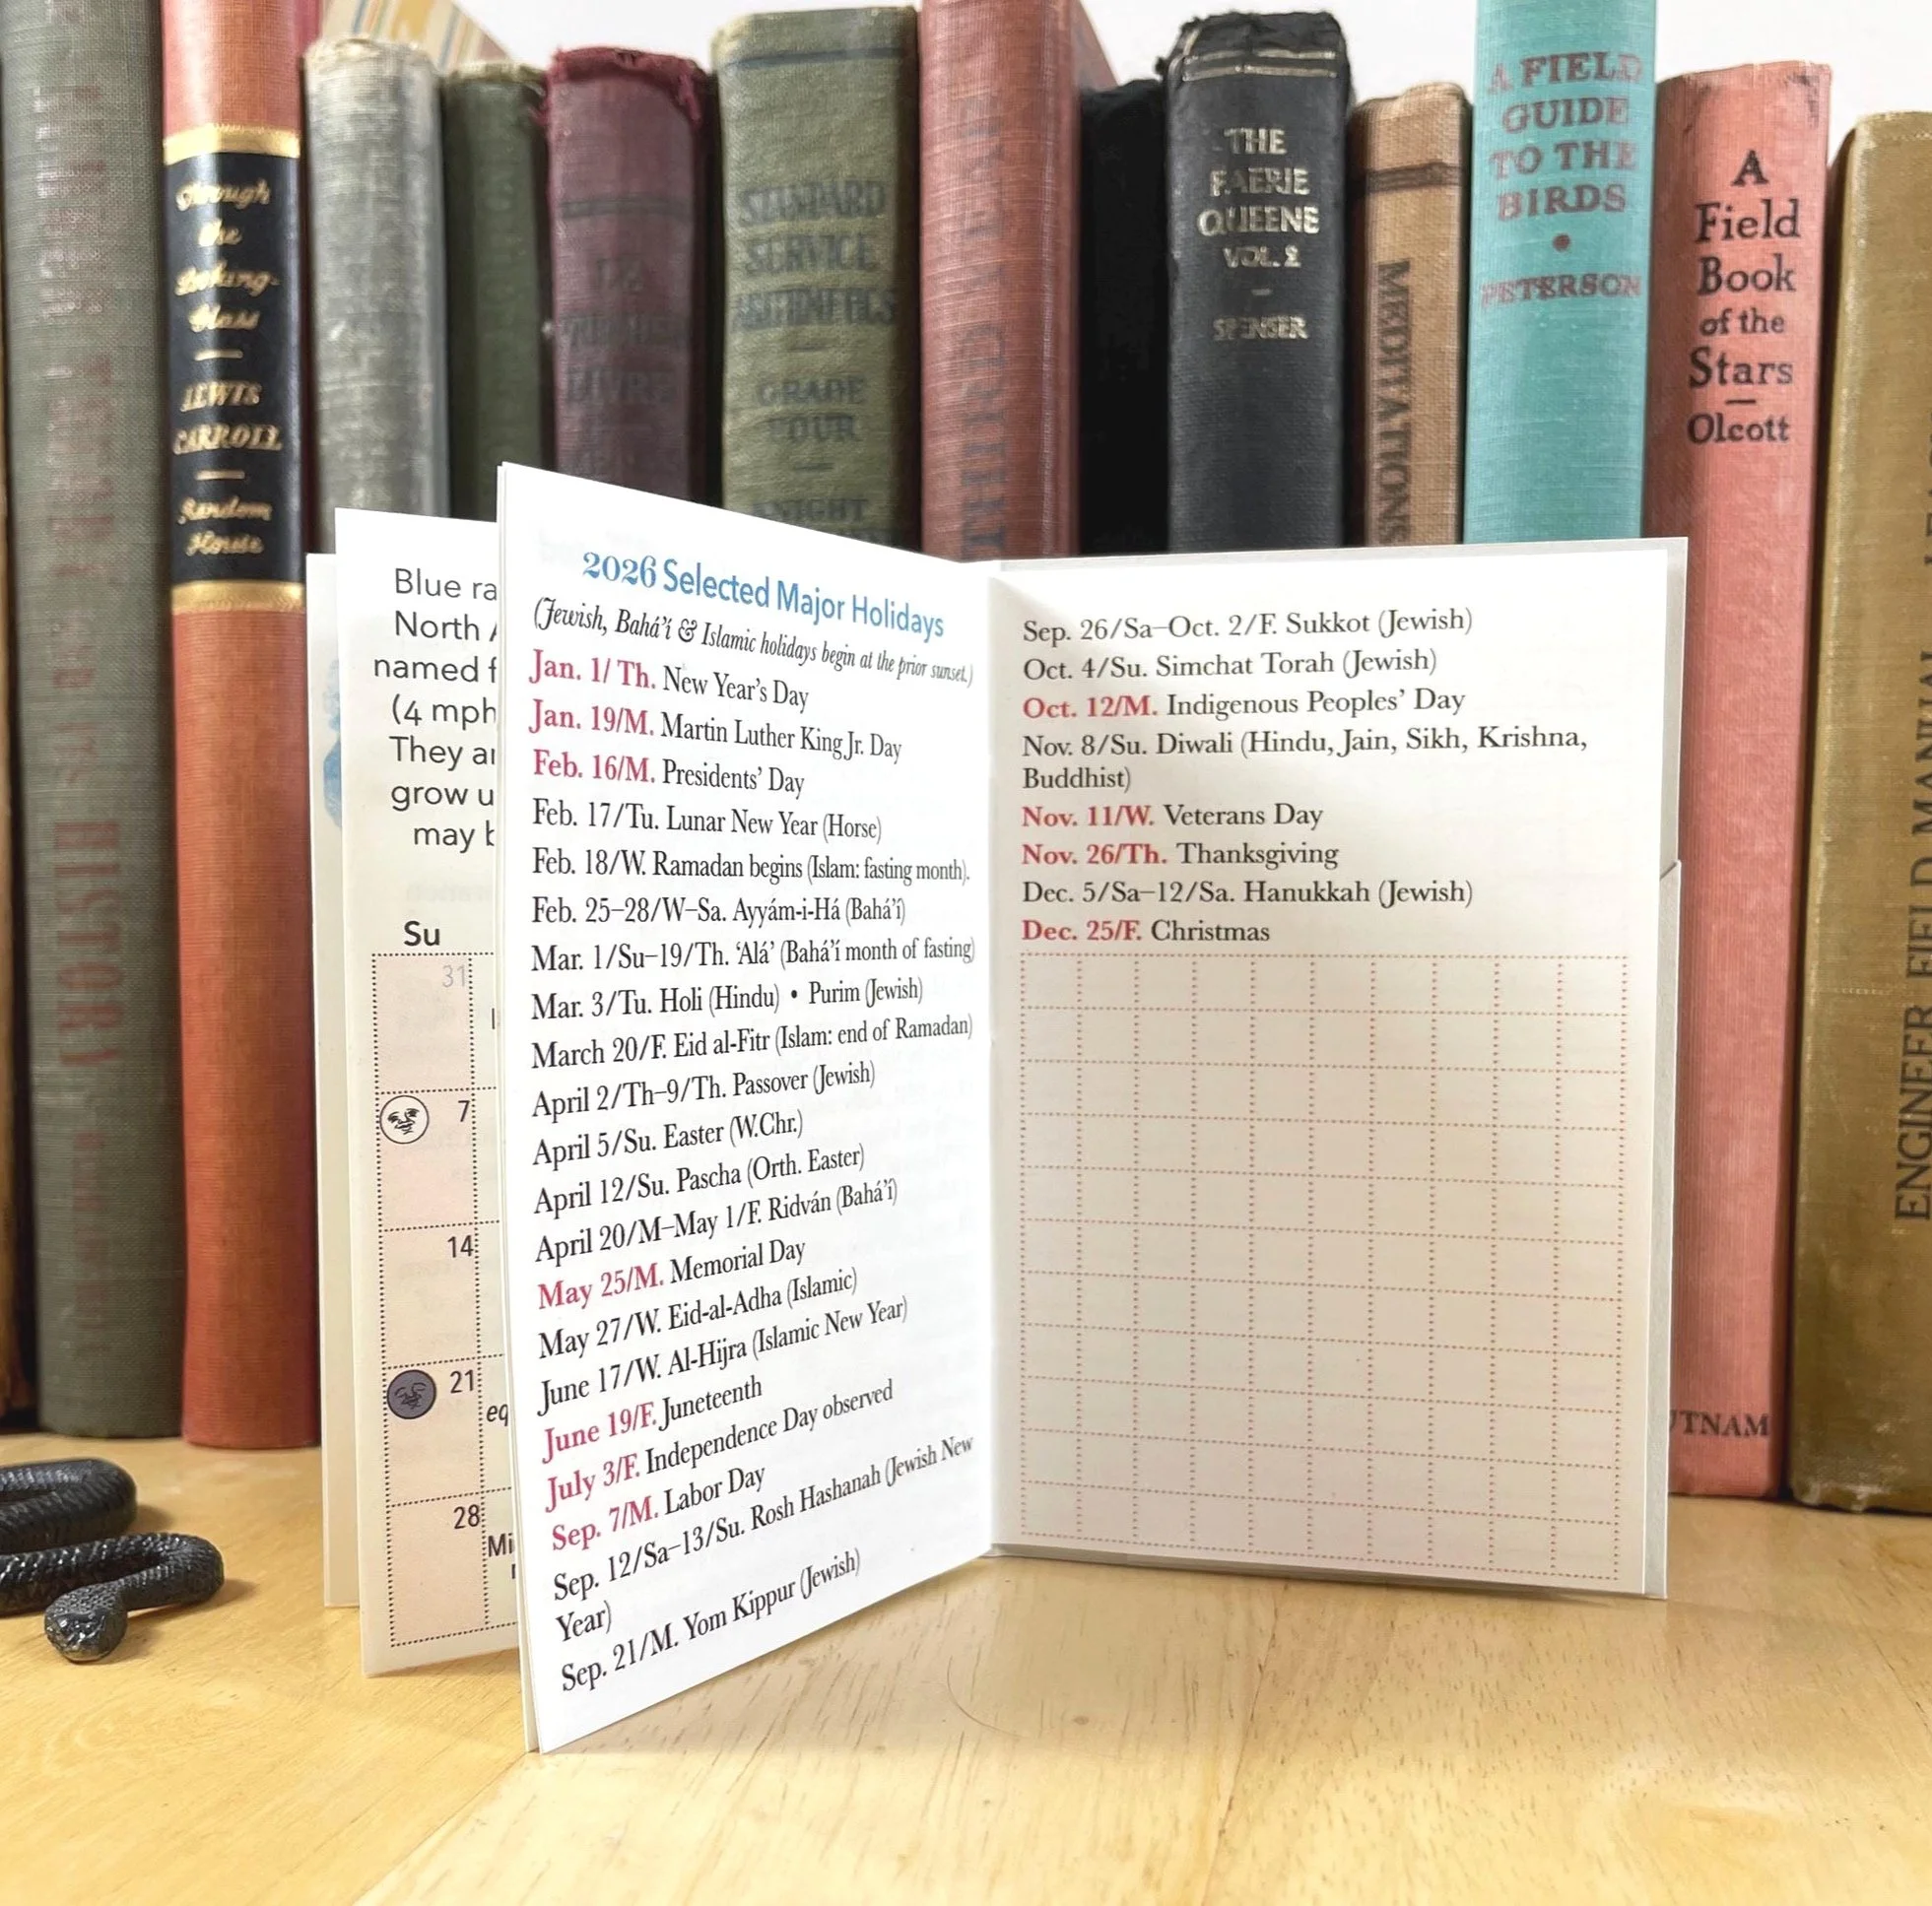 Through
the
Looking-
Glass
LEWIS
CARROLL
Random
House
HISTORY
STANDARD
SERVICE
ARITHMETICS
GRADE
FOUR
KNIGHT
THE
FAERIE
QUEENE
VOL. 2
SPENSER
MEDITATIONS
A FIELD
GUIDE
TO THE
BIRDS
PETERSON
A
Field
Book
of the
Stars
Olcott
UTNAM
ENGINEER FIELD MANUAL
Blue ra
North
named f
(4 mph
They ar
grow u
may b
Su
31
7
14
21
eq
28
Mi
2026 Selected Major Holidays
(Jewish, Bahá’í & Islamic holidays begin at the prior sunset.)
Jan. 1/ Th. New Year’s Day
Jan. 19/M. Martin Luther King Jr. Day
Feb. 16/M. Presidents’ Day
Feb. 17/Tu. Lunar New Year (Horse)
Feb. 18/W. Ramadan begins (Islam: fasting month).
Feb. 25–28/W–Sa. Ayyám-i-Há (Bahá’í)
Mar. 1/Su–19/Th. ‘Alá’ (Bahá’í month of fasting)
Mar. 3/Tu. Holi (Hindu) • Purim (Jewish)
March 20/F. Eid al-Fitr (Islam: end of Ramadan)
April 2/Th–9/Th. Passover (Jewish)
April 5/Su. Easter (W.Chr.)
April 12/Su. Pascha (Orth. Easter)
April 20/M–May 1/F. Ridván (Bahá’í)
May 25/M. Memorial Day
May 27/W. Eid-al-Adha (Islamic)
June 17/W. Al-Hijra (Islamic New Year)
June 19/F. Juneteenth
July 3/F. Independence Day observed
Sep. 7/M. Labor Day
Sep. 12/Sa–13/Su. Rosh Hashanah (Jewish New
Year)
Sep. 21/M. Yom Kippur (Jewish)
Sep. 26/Sa–Oct. 2/F. Sukkot (Jewish)
Oct. 4/Su. Simchat Torah (Jewish)
Oct. 12/M. Indigenous Peoples’ Day
Nov. 8/Su. Diwali (Hindu, Jain, Sikh, Krishna,
Buddhist)
Nov. 11/W. Veterans Day
Nov. 26/Th. Thanksgiving
Dec. 5/Sa–12/Sa. Hanukkah (Jewish)
Dec. 25/F. Christmas